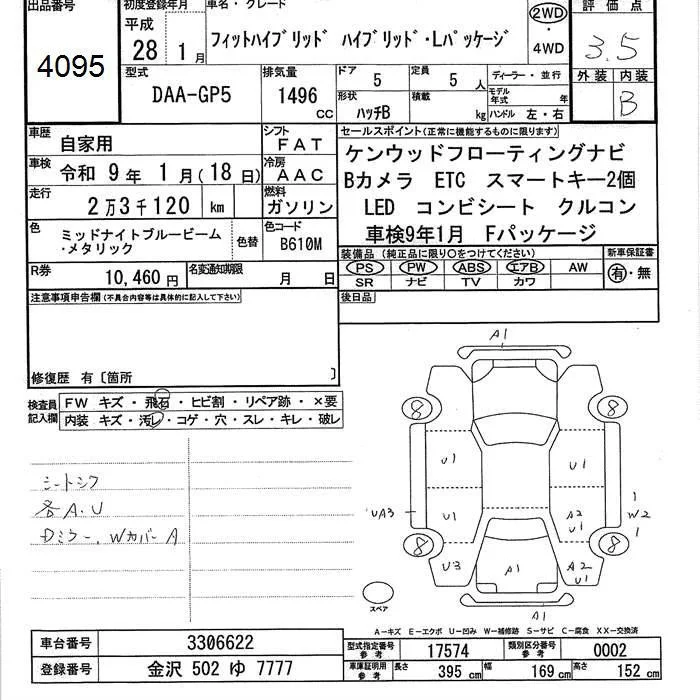 出品番号
4095
初度登録年月
平成
28 1月
車名・グレード
フィットハイブリッド ハイブリッド・Lパッケージ
2WD
・
4WD
評価点
3.5
外装 内装
B
型式
DAA-GP5
排気量
1496
cc
ドア
5
定員
5人
形状
ハッチB
積載
kg
ディーラー・並行
モデル年式 年
ハンドル 左・右
車歴
自家用
シフト
FAT
車検
令和 9年 1月(18日)
冷房
AAC
走行
2万3千120 km
燃料
ガソリン
色
ミッドナイトブルービーム
・メタリック
色替
色コード
B610M
R券
10,460円
名変通知期限
月 日
セールスポイント(正常に機能するものに限ります)
ケンウッドフローティングナビ
Bカメラ ETC スマートキー2個
LED コンビシート クルコン
車検9年1月 Fパッケージ
装備品(純正品に限り○をつけてください)
新車保証書
PS PW ABS エアB AW
有・無
SR ナビ TV カワ
後日品
注意事項申告欄(不具合内容等は具体的に記入して下さい)
修復歴 有〔箇所 〕
検査員
記入欄
FW キズ・飛石・ヒビ割・リペア跡・×要
内装 キズ・汚レ・コゲ・穴・スレ・キレ・破レ
シートシワ
各A.U
Dミラー、Wカバー A
A1
8
8
U1
U1
UA3
U1
A2
U1
1
W2
1
8
8
U3
A1
A2
U1
A1
スペア
A-キズ E-エクボ U-凹み W-補修跡 S-サビ C-腐食 XX-交換済
車台番号
3306622
登録番号
金沢 502 ゆ 7777
型式指定番号
参考
17574
類別区分番号
参考
0002
車庫証明用
参考
長さ
395 cm
幅
169 cm
高さ
152 cm